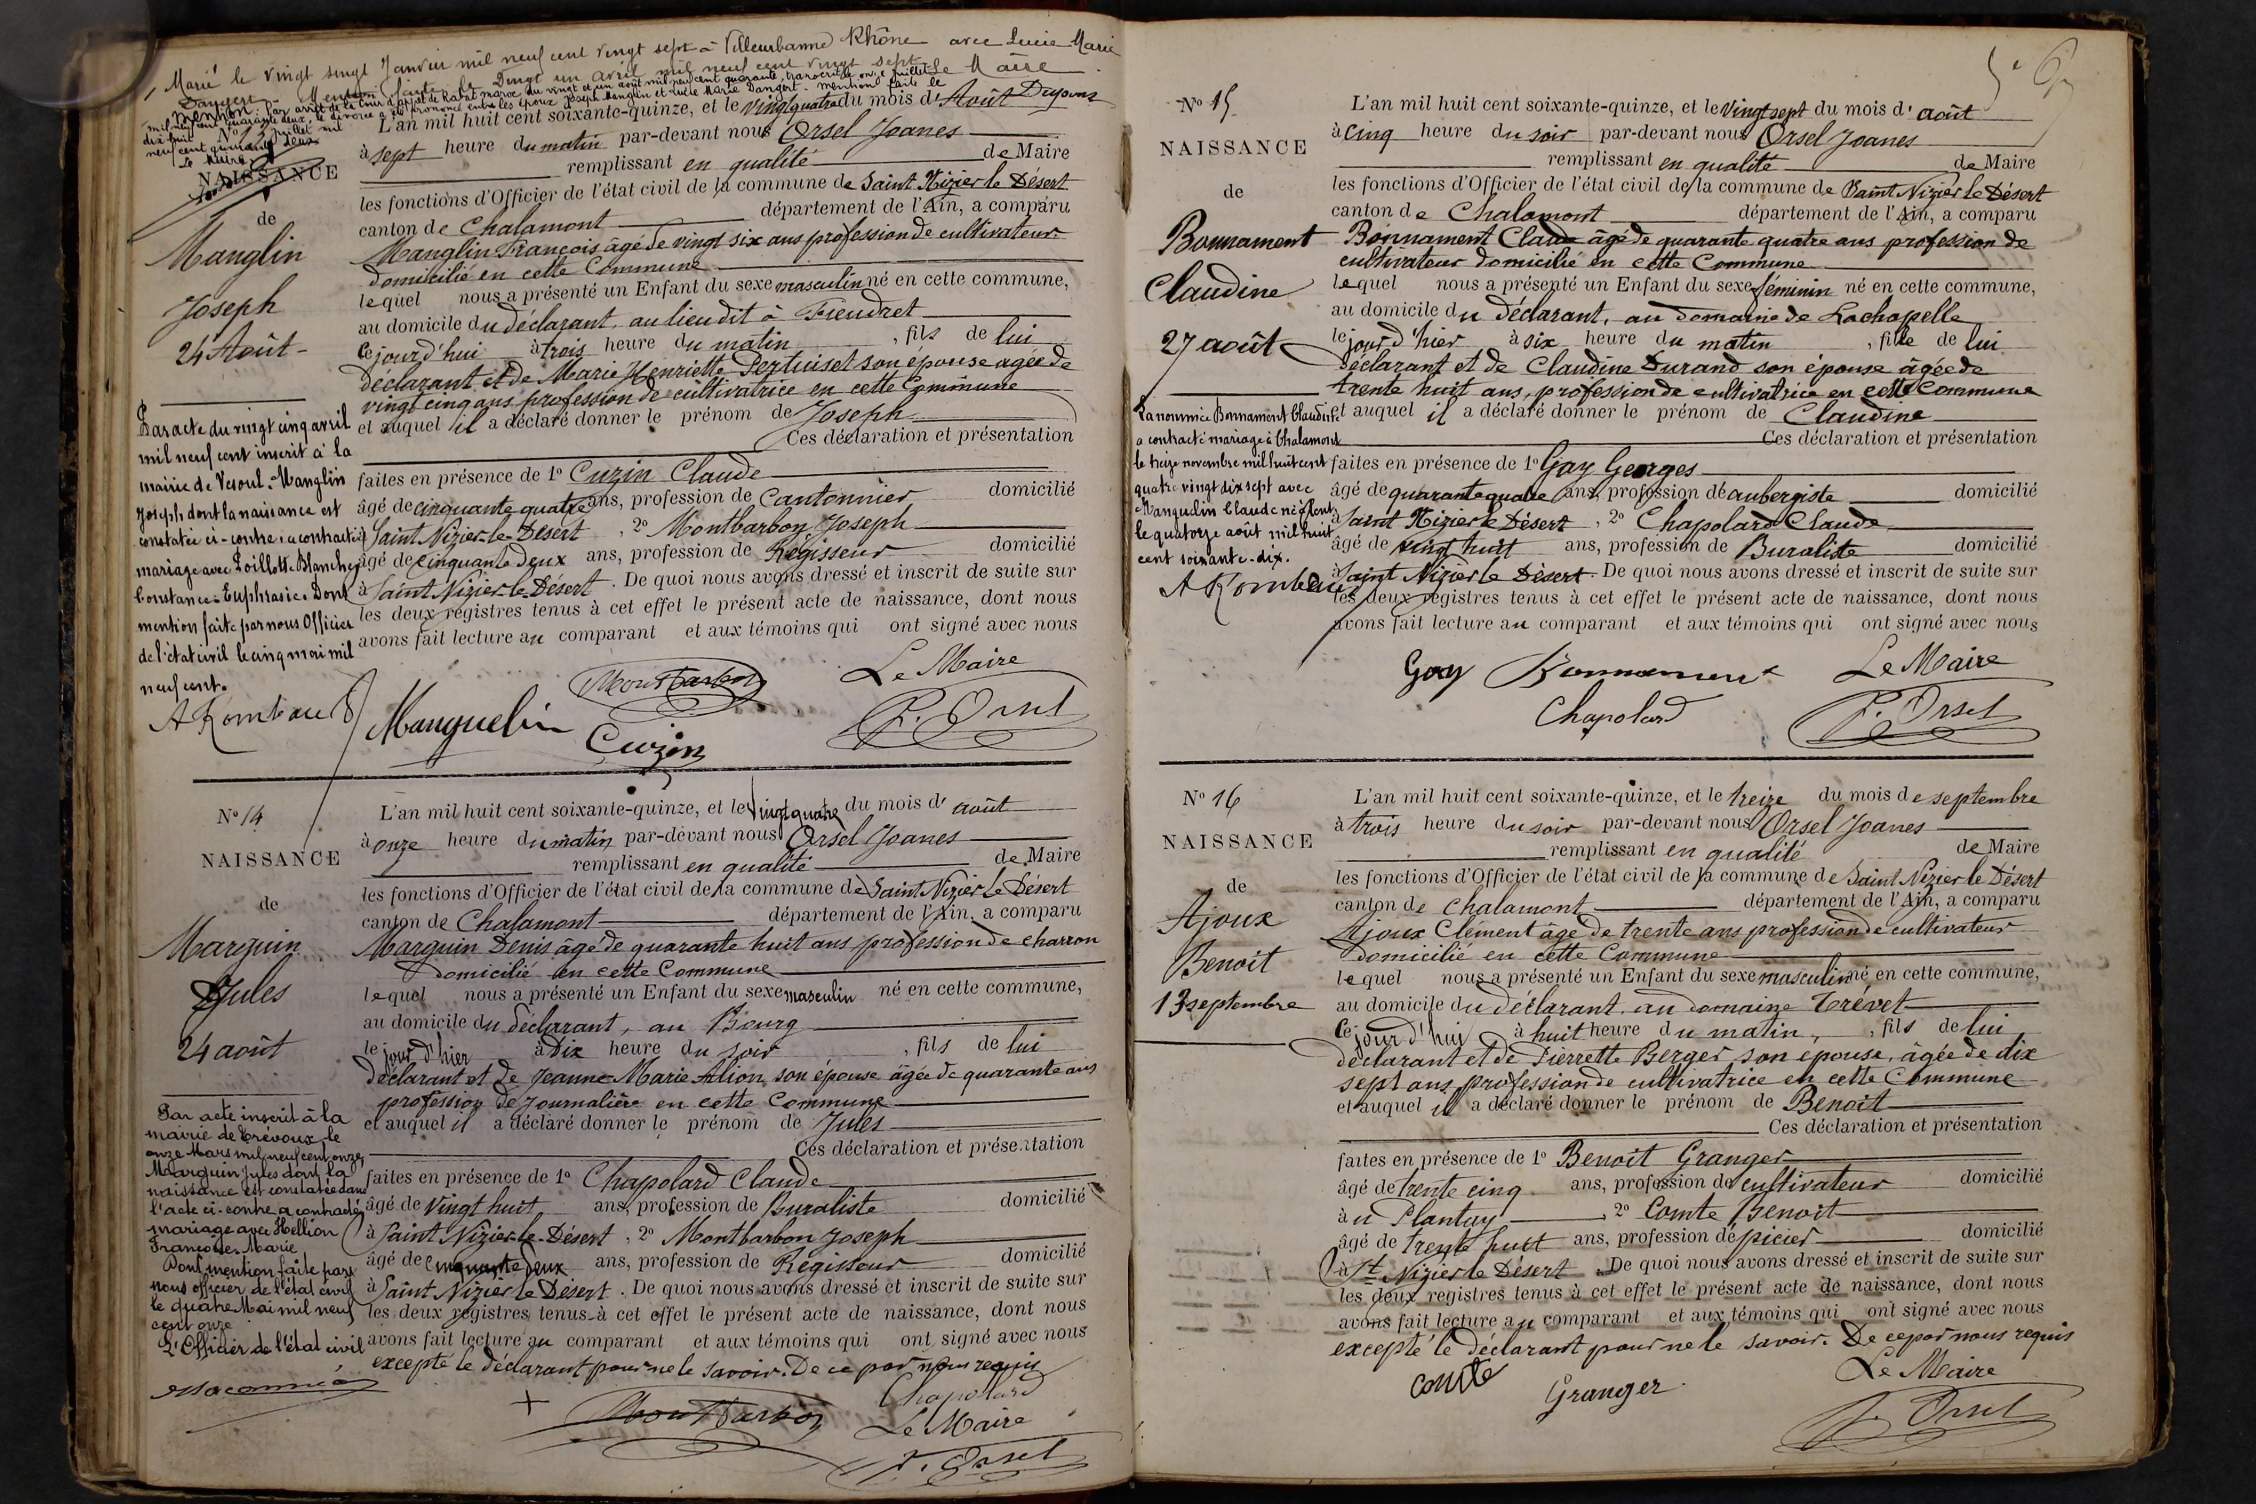 Marié le vingt Janvier mil neuf cent vingt sept à Villeurbanne Rhône avec Lucie Marie
Dangert. Mention faite le Vingt un avril mil neuf cent vingt sept Le Maire
Mention: Par arrêt de la Cour d'appel de Rabat maroc du vingt et un août mil neuf cent quarante, transcrit le onze juillet
mil neuf cent quarante deux, le divorce a été prononcé entre les époux Joseph Manglin et Lucie Marie Dangert. mention faite le
dix huit juillet mil
neuf cent quarante deux
Le Maire
Nº 13
NAISSANCE
de
Manglin
Joseph
24 Août
L'an mil huit cent soixante-quinze, et le vingt quatre du mois d'Août
à sept heure du matin par-devant nous Orsel Joanes
remplissant en qualité de Maire
les fonctions d'Officier de l'état civil de la commune de Saint Nizier le Désert
canton de Chalamont département de l'Ain, a comparu
Manglin François âgé de vingt six ans profession de cultivateur
domicilié en cette Commune
lequel nous a présenté un Enfant du sexe masculin né en cette commune,
au domicile du déclarant, au lieu dit à Fieudret
ce jourd'hui à trois heure du matin , fils de lui
déclarant et de Marie Henriette Pertuiset son épouse agée de
vingt cinq ans profession de cultivatrice en cette Commune
et auquel il a déclaré donner le prénom de Joseph
Ces déclaration et présentation
faites en présence de 1º Cuzin Claude
âgé de cinquante quatre ans, profession de Cantonnier domicilié
à Saint Nizier le Désert , 2º Montbarbon Joseph
âgé de Cinquante deux ans, profession de Régisseur domicilié
à Saint Nizier le Désert . De quoi nous avons dressé et inscrit de suite sur
les deux registres tenus à cet effet le présent acte de naissance, dont nous
avons fait lecture au comparant et aux témoins qui ont signé avec nous
Par acte du vingt cinq avril
mil neuf cent inscrit à la
mairie de Vesoul. Manglin
Joseph dont la naissance est
constatée ci-contre, a contracté
mariage avec Poillott Blanche
Constance-Euphrasie. Dont
mention faite par nous Officier
de l'état civil le cinq mai mil
neuf cent.
Montbarbon Le Maire
Manguelin Cuzin J. Orsel
Nº 14
NAISSANCE
de
Marguin
Jules
24 août
L'an mil huit cent soixante-quinze, et le Vingt quatre du mois d'août
à onze heure du matin par-devant nous Orsel Joanes
remplissant en qualité de Maire
les fonctions d'Officier de l'état civil de la commune de Saint Nizier le Désert
canton de Chalamont département de l'Ain, a comparu
Marguin Denis âgé de quarante huit ans profession de charron
domicilié en cette Commune
lequel nous a présenté un Enfant du sexe masculin né en cette commune,
au domicile du déclarant, au Bourg
le jour d'hier à dix heure du soir , fils de lui
déclarant et de Jeanne-Marie Alion, son épouse âgée de quarante ans
profession de Journalière en cette Commune
et auquel il a déclaré donner le prénom de Jules
Ces déclaration et présentation
faites en présence de 1º Chapolard Claude
âgé de Vingt huit ans, profession de Buraliste domicilié
à Saint Nizier le Désert , 2º Montbarbon Joseph
âgé de Cinquante deux ans, profession de Régisseur domicilié
à Saint Nizier le Désert . De quoi nous avons dressé et inscrit de suite sur
les deux registres tenus à cet effet le présent acte de naissance, dont nous
avons fait lecture au comparant et aux témoins qui ont signé avec nous
excepté le déclarant pour ne le savoir. De ce par nous requis
Par acte inscrit à la
mairie de Trévoux, le
onze Mars mil neuf cent onze,
Marguin Jules dont la
naissance est constatée dans
l'acte ci-contre a contracté
mariage avec Hellion
Françoise Marie
Dont mention faite par
nous officier de l'état civil
le quatre Mai mil neuf
cent onze
L'Officier de l'état civil
Chapolard
Montbarbon Le Maire
J. Orsel
Nº 15
NAISSANCE
de
Bonnament
Claudine
27 août
L'an mil huit cent soixante-quinze, et le Vingt sept du mois d'août
à cinq heure du soir par-devant nous Orsel Joanes
remplissant en qualité de Maire
les fonctions d'Officier de l'état civil de la commune de Saint Nizier le Désert
canton de Chalamont département de l'Ain, a comparu
Bonnament Claude âgé de quarante quatre ans profession de
cultivateur domicilié en cette Commune
lequel nous a présenté un Enfant du sexe féminin né en cette commune,
au domicile du déclarant, au domaine de Lachapelle
le jour d'hier à six heure du matin , fille de lui
déclarant et de Claudine Durand son épouse âgée de
trente huit ans, profession de cultivatrice en cette Commune
et auquel il a déclaré donner le prénom de Claudine
Ces déclaration et présentation
faites en présence de 1º Gay Georges
âgé de quarante quatre ans, profession de aubergiste domicilié
à Saint Nizier le Désert , 2º Chapolard Claude
âgé de vingt huit ans, profession de Buraliste domicilié
à Saint Nizier le Désert . De quoi nous avons dressé et inscrit de suite sur
les deux registres tenus à cet effet le présent acte de naissance, dont nous
avons fait lecture au comparant et aux témoins qui ont signé avec nous
La nommée Bonnamont Claudine
a contracté mariage à Chalamont
le treize novembre mil huit cent
quatre vingt dix sept avec
Manguelin Claude né
le quatorze août mil huit
cent soixante-dix.
Gay Bonnament Le Maire
Chapolard J. Orsel
Nº 16
NAISSANCE
de
Ajoux
Benoit
13 septembre
L'an mil huit cent soixante-quinze, et le treize du mois de septembre
à trois heure du soir par-devant nous Orsel Joanes
remplissant en qualité de Maire
les fonctions d'Officier de l'état civil de la commune de Saint Nizier le Désert
canton de Chalamont département de l'Ain, a comparu
Ajoux Clément âgé de trente ans profession de cultivateur
domicilié en cette Commune
lequel nous a présenté un Enfant du sexe masculin né en cette commune,
au domicile du déclarant au domaine Crévet
ce jour d'hui à huit heure du matin, , fils de lui
déclarant et de Pierrette Berger son épouse, âgée de dix
sept ans, profession de cultivatrice en cette Commune
et auquel il a déclaré donner le prénom de Benoit
Ces déclaration et présentation
faites en présence de 1º Benoit Granger
âgé de trente cinq ans, profession de cultivateur domicilié
à u Plantay , 2º Comte Benoit
âgé de trente huit ans, profession dépicier domicilié
à St Nizier le Désert . De quoi nous avons dressé et inscrit de suite sur
les deux registres tenus à cet effet le présent acte de naissance, dont nous
avons fait lecture au comparant et aux témoins qui ont signé avec nous
excepté le déclarant pour ne le savoir. De ce par nous requis
Comte Granger Le Maire
J. Orsel